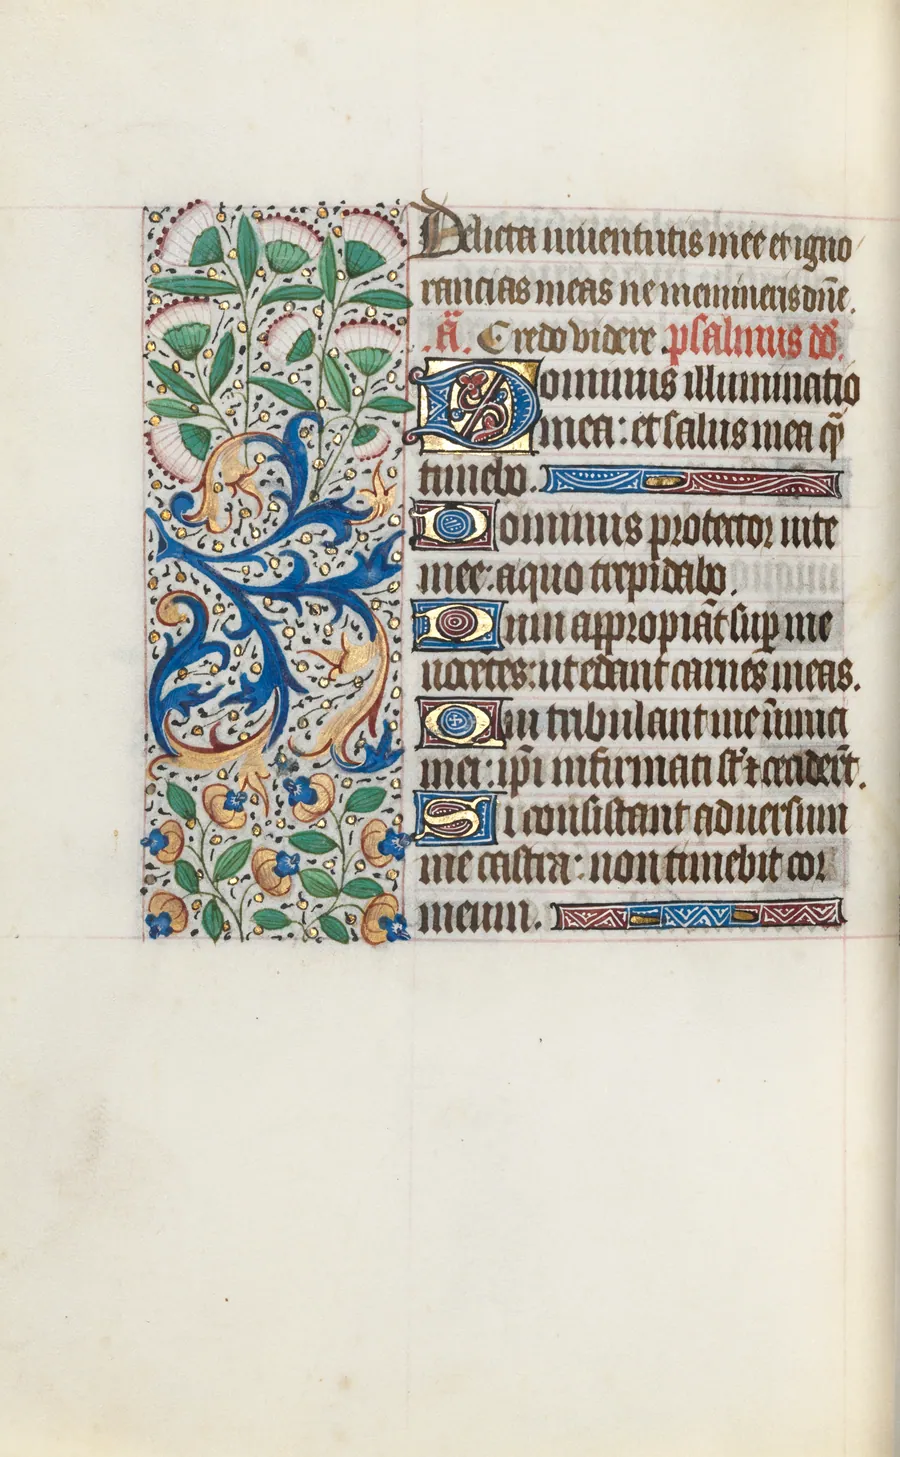 Delicta iuuentutis mee et igno
rancias meas ne memineris dn̄e.
.A̅. Credo videre psalmus dd̄.
Dominus illuminatio
mea: et salus mea q̄
timebo.
Dominus protector uite
mee: a quo trepidabo.
Dum appropiāt sup̄ me
nocētes: ut edant carnes meas.
Qui tribulant me inimici
mei: ip̄i infirmati sūt ⁊ cecider̄t.
Si consistant aduersum
me castra: non timebit cor
meum.